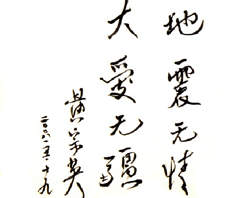 地震无情
大爱无疆
黄宗英
二〇〇八·五·十九